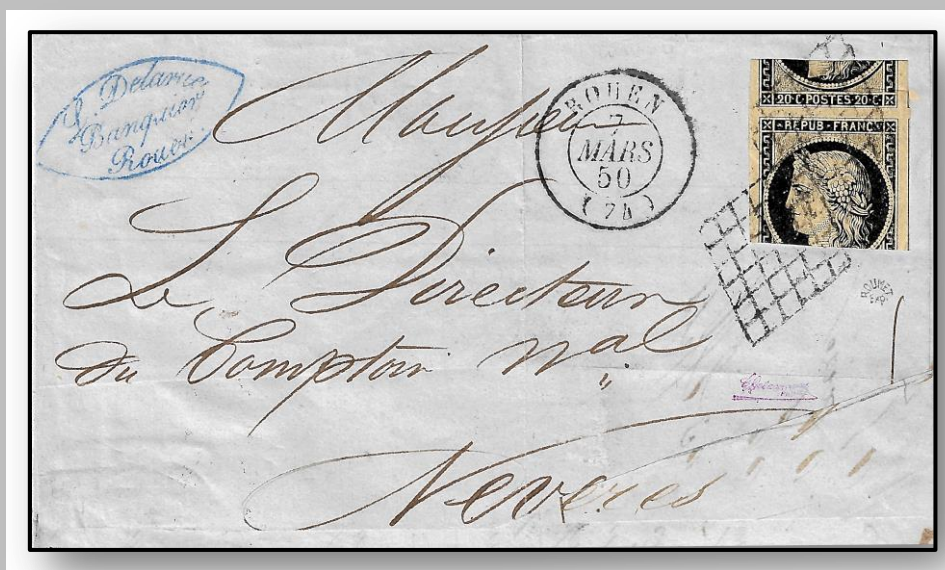 L. Delarue
Banquier
Rouen
ROUEN
7
MARS
50
(74)
20·C·POSTES·20·C·
·REPUB·FRANC·
Monsieur
Le Directeur
du Comptoir nal
Nevers
ROUMET
EXP.